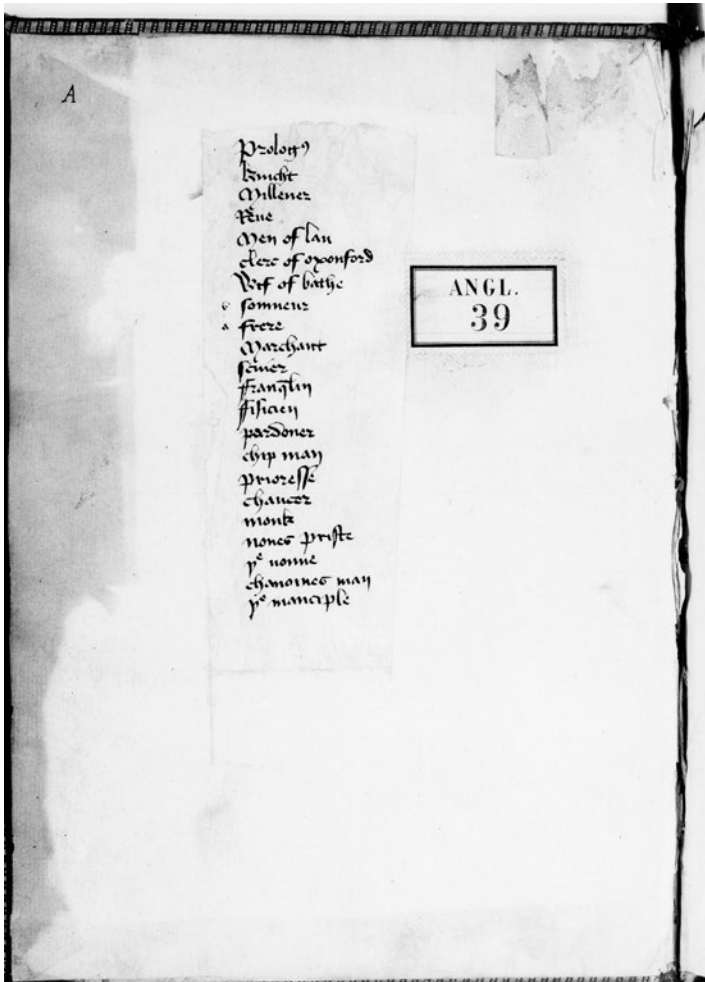 A
Prolog⁹
knicht
Millener
Reue
Men of lau
clerc of oxonford
Wif of bathe
b somneur
a frere
Marchant
squier
franqlin
fisicien
pardoner
chip man
prioresse
chaucer
monk
nones priste
yᵉ nonne
chanoines man
yᵉ manciple
ANGL.
39